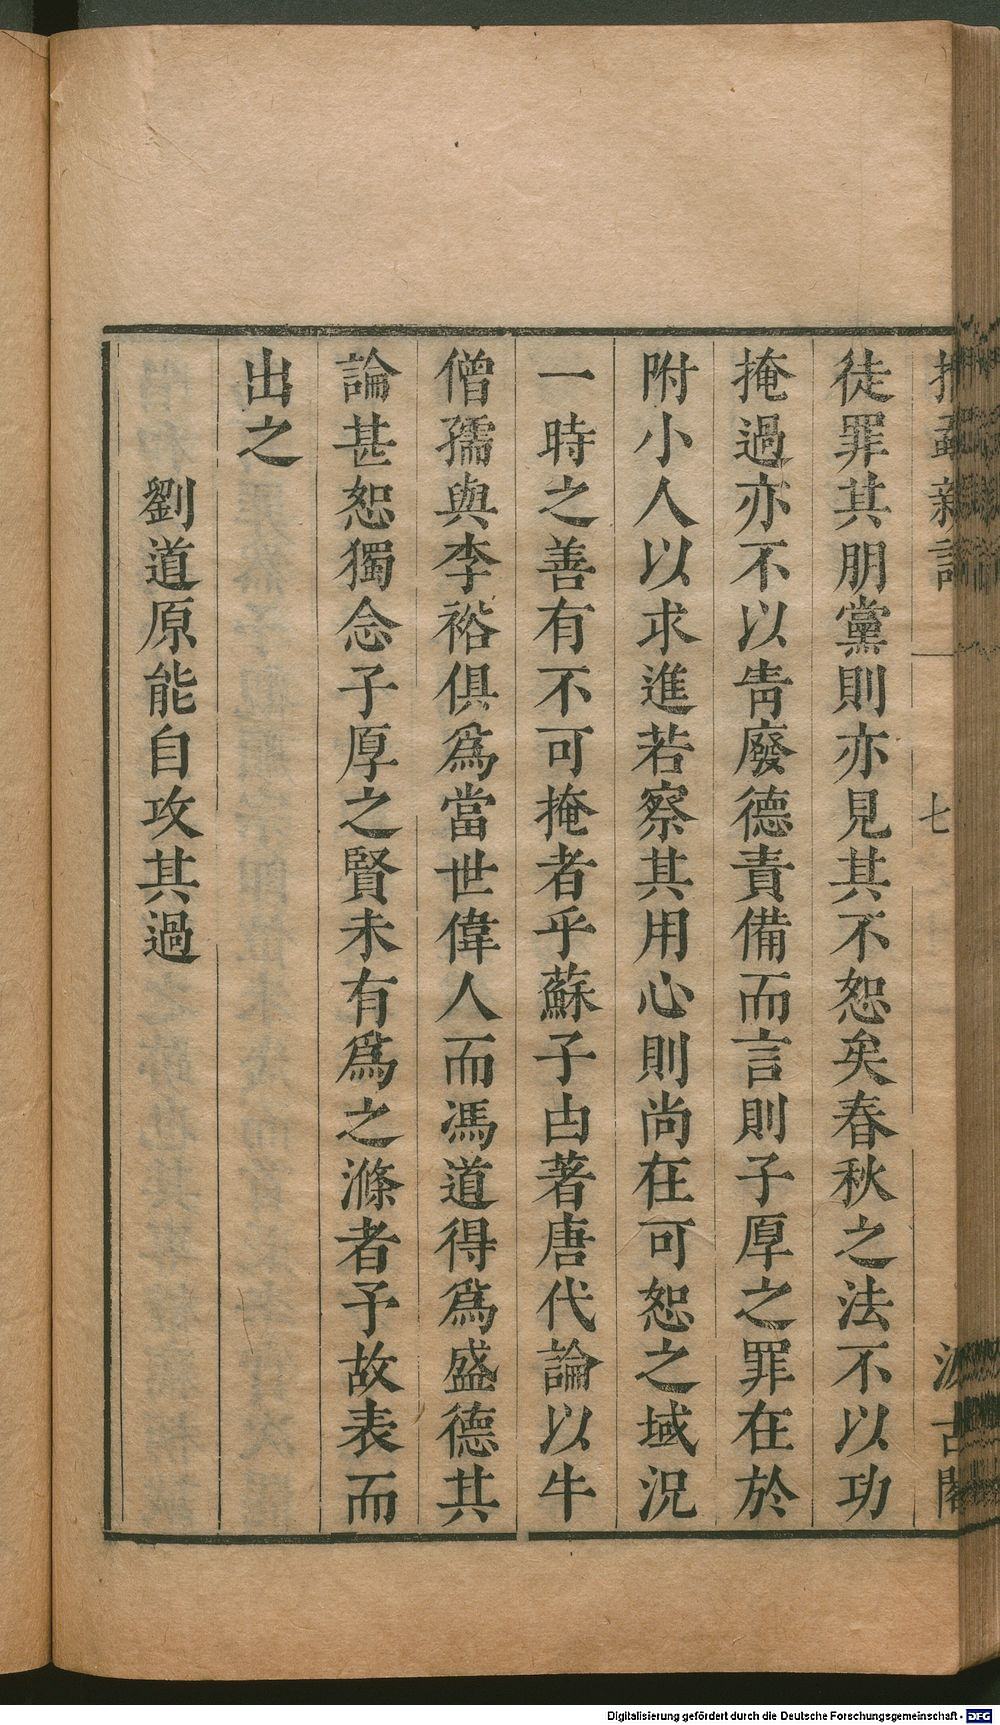 捫蝨新話 一 七 汲古閣
徒罪其朋黨則亦見其不恕矣春秋之法不以功
掩過亦不以眚廢德責備而言則子厚之罪在於
附小人以求進若察其用心則尚在可恕之域況
一時之善有不可掩者乎蘇子由著唐代論以牛
僧孺與李裕俱爲當世偉人而馮道得爲盛德其
論甚恕獨念子厚之賢未有爲之滌者予故表而
出之
劉道原能自攻其過
Digitalisierung gefördert durch die Deutsche Forschungsgemeinschaft - DFG